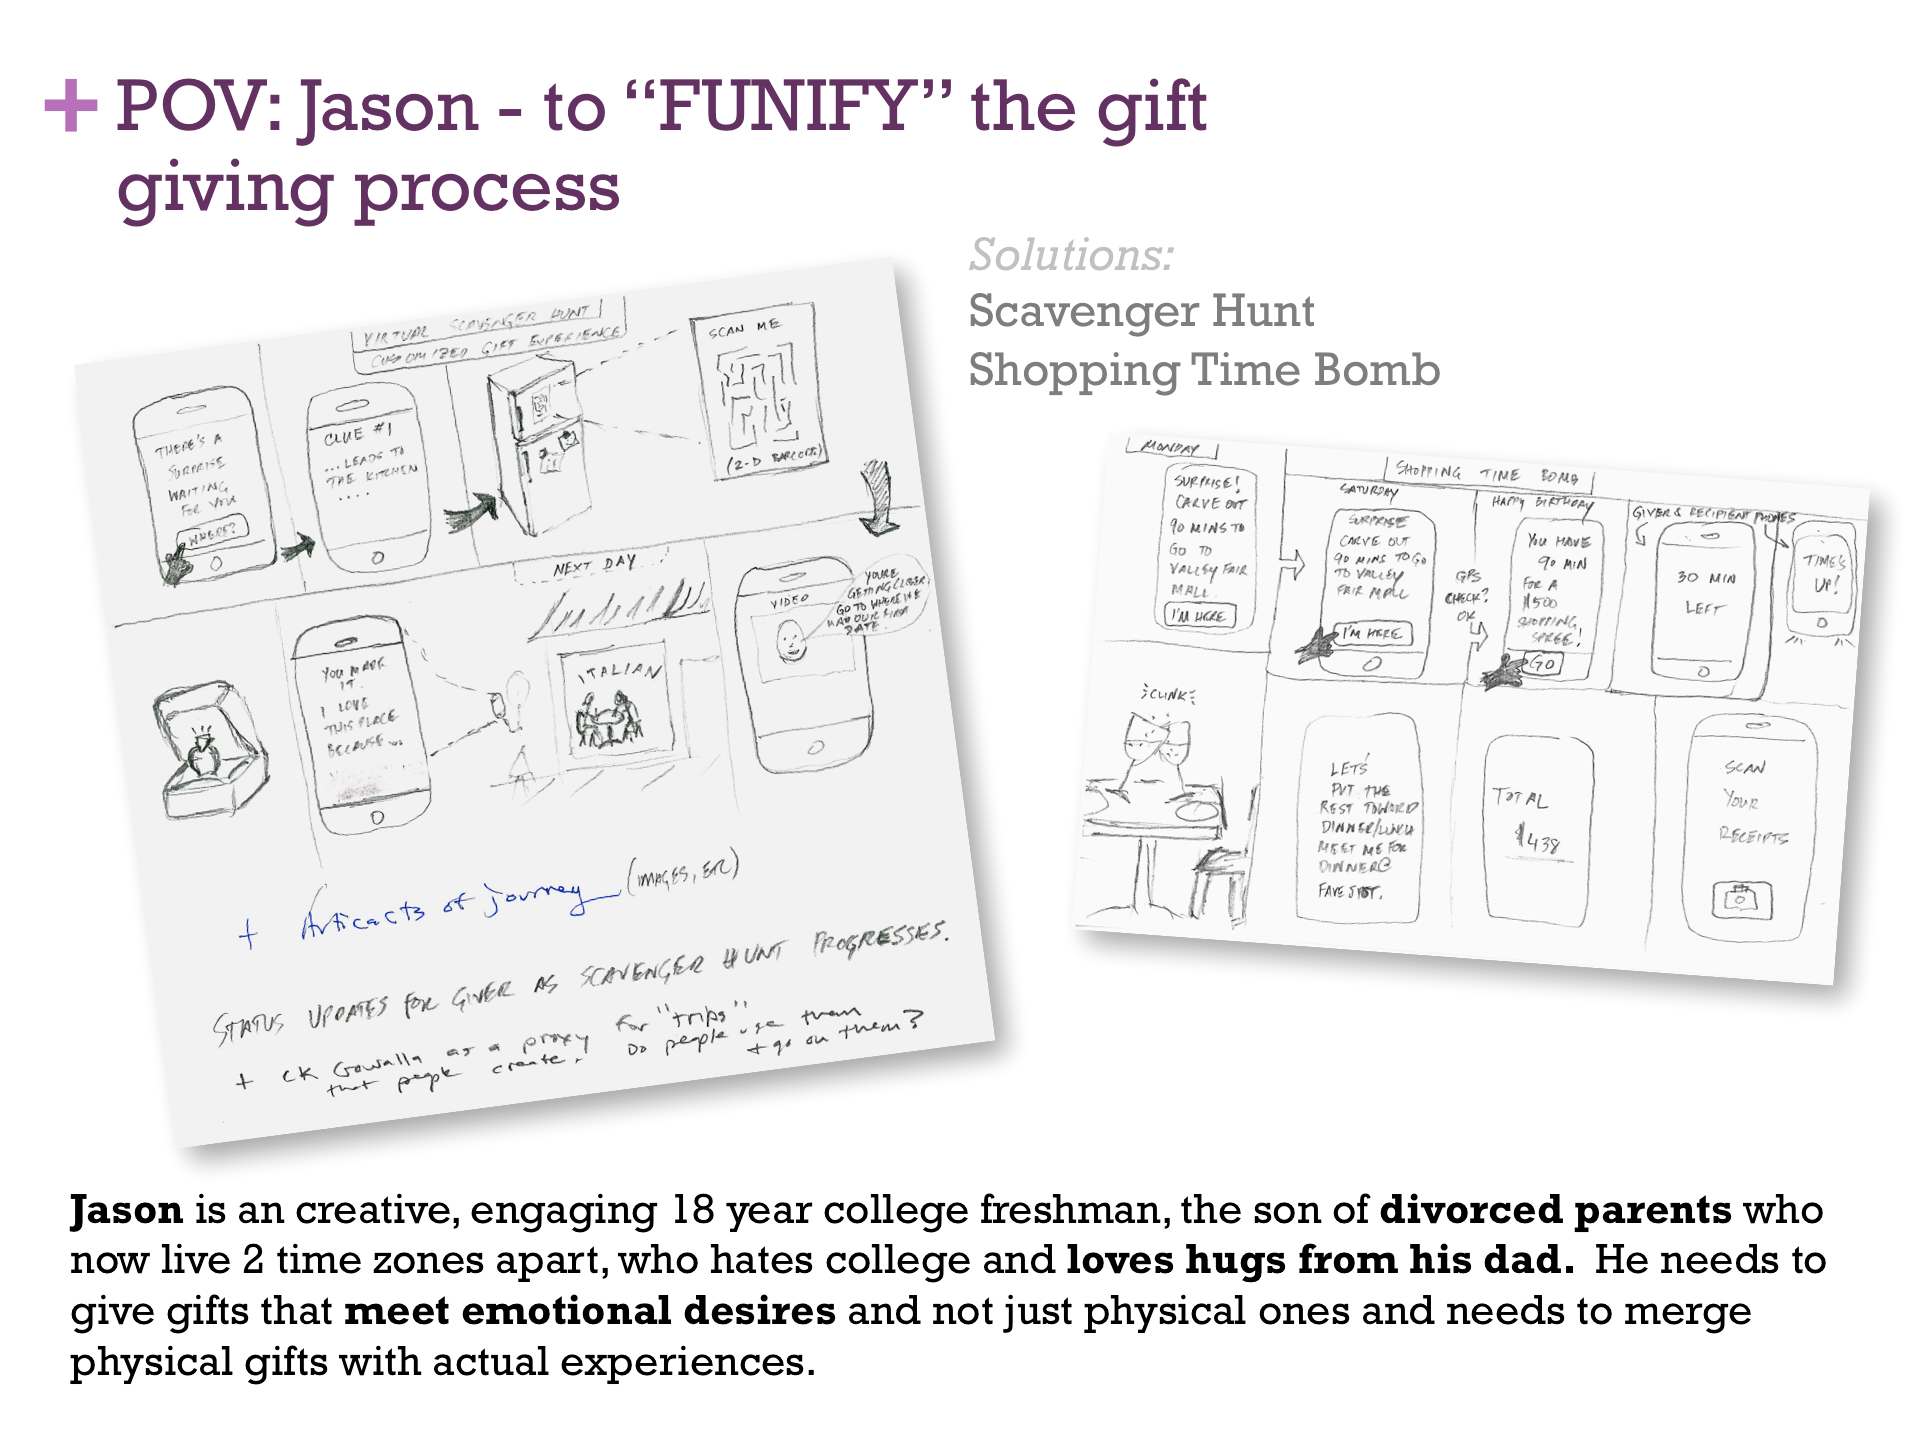 + POV: Jason - to “FUNIFY” the gift
giving process
Solutions:
Scavenger Hunt
Shopping Time Bomb
VIRTUAL SCAVENGER HUNT
CUSTOMIZED GIFT EXPERIENCE
THERE'S A
SURPRISE
WAITING
FOR YOU
WHERE?
CLUE #1
...LEADS TO
THE KITCHEN
....
SCAN ME
(2-D BARCODE)
NEXT DAY
VIDEO
YOU'RE
GETTING CLOSER,
GO TO WHERE WE
HAD OUR FIRST
DATE.
ITALIAN
YOU MADE
IT.
I LOVE
THIS PLACE
BECAUSE...
+ Articacts of journey (IMAGES, ETC)
STATUS UPDATES FOR GIVER AS SCAVENGER HUNT PROGRESSES.
+ CK Gowalla as a proxy for "trips"
that people create. Do people use them
+ go on them?
MONDAY
SURPRISE!
CARVE OUT
90 MINS TO
GO TO
VALLEY FAIR
MALL.
I'M HERE
SHOPPING TIME BOMB
SATURDAY
SURPRISE
CARVE OUT
90 MINS TO GO
TO VALLEY
FAIR MALL
I'M HERE
GPS
CHECK?
OK
HAPPY BIRTHDAY
YOU HAVE
90 MIN
FOR A
$500
SHOPPING
SPREE!
GO
GIVER & RECIPIENT PHONES
30 MIN
LEFT
TIME'S
UP!
CLINK
LETS
PUT THE
REST TOWORD
DINNER/LUNCH
MEET ME FOR
DINNER@
FAVE SPOT.
TOTAL
$438
SCAN
YOUR
RECEIPTS
Jason is an creative, engaging 18 year college freshman, the son of divorced parents who
now live 2 time zones apart, who hates college and loves hugs from his dad. He needs to
give gifts that meet emotional desires and not just physical ones and needs to merge
physical gifts with actual experiences.